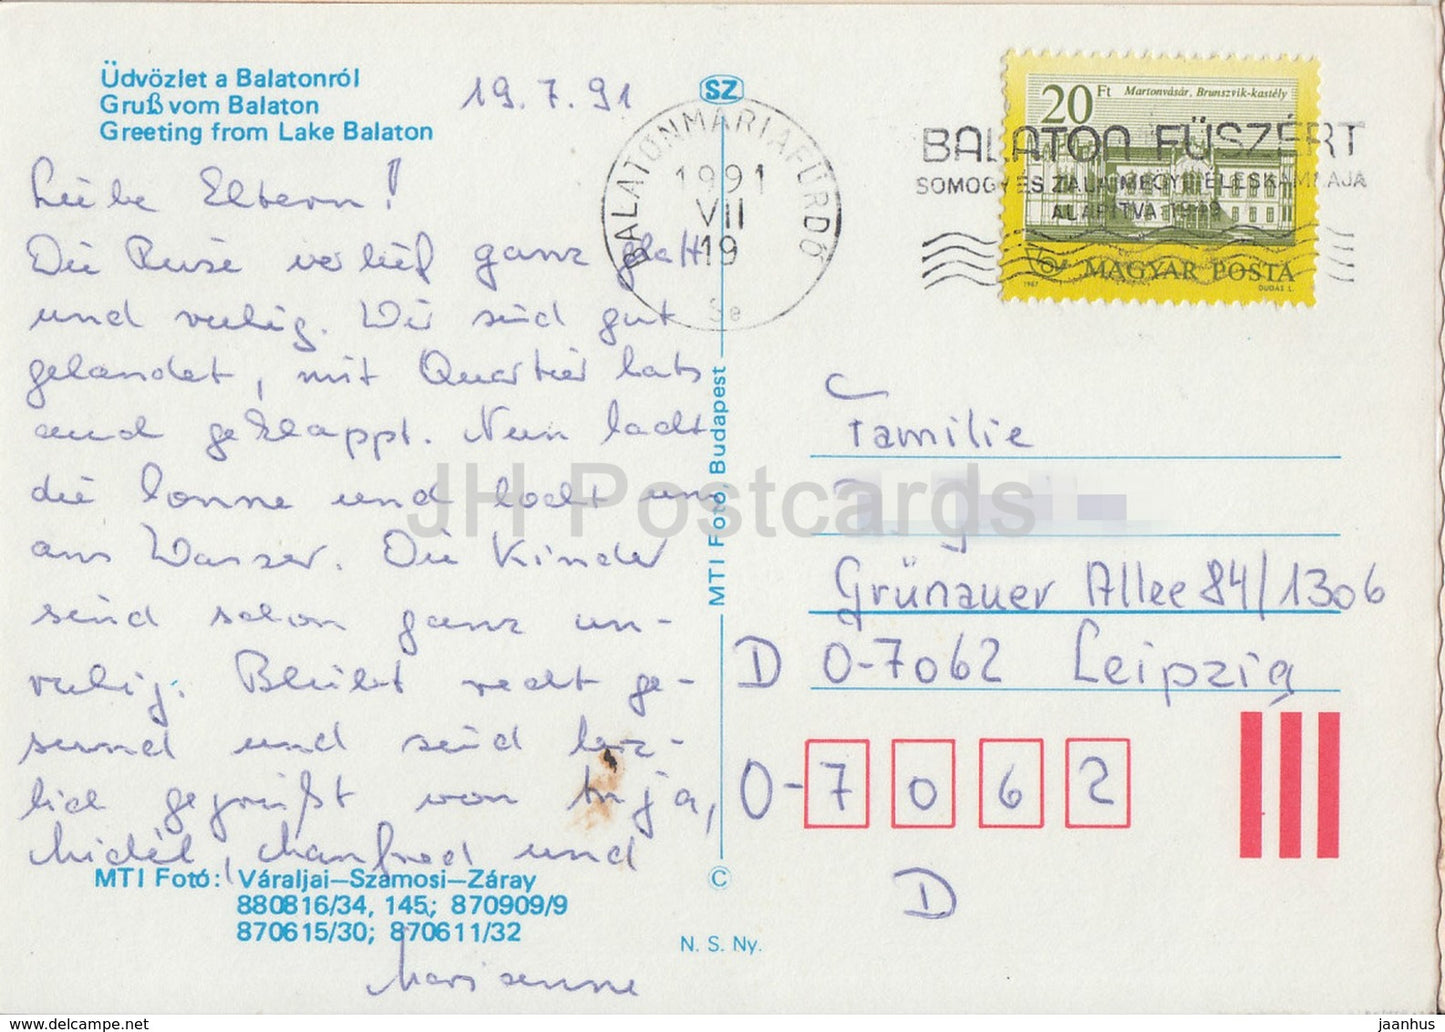 Üdvözlet a Balatonról
Gruß vom Balaton
Greeting from Lake Balaton
19.7.91
Liebe Eltern!
Die Reise verlief ganz glatt
und ruhig. Wir sind gut
gelandet, mit Quartier hats
auch geklappt. Nun lacht
die Sonne und lockt uns
ans Wasser. Die Kinder
sind schon ganz un-
ruhig. Bleibt recht ge-
sund und seid herz-
lich gegrüßt von
Manfred und
Marianne
MTI Fotó: Váraljai–Szamosi–Záray
880816/34, 145; 870909/9
870615/30; 870611/32
SZ
MTI Fotó, Budapest
©
N. S. Ny.
BALATONMÁRIAFÜRDŐ
1991
VII
19
BALATON FŰSZÉRT
SOMOGY ÉS ZALA MEGYE
ALAPÍTVA
20 Ft Martonvásár, Brunszvik-kastély
MAGYAR POSTA
1987 DUDÁS L.
Familie
Grünauer Allee 84/1306
D O-7062 Leipzig
O-7062
D
JH Postcards
https://www.delcampe.net jaanhus